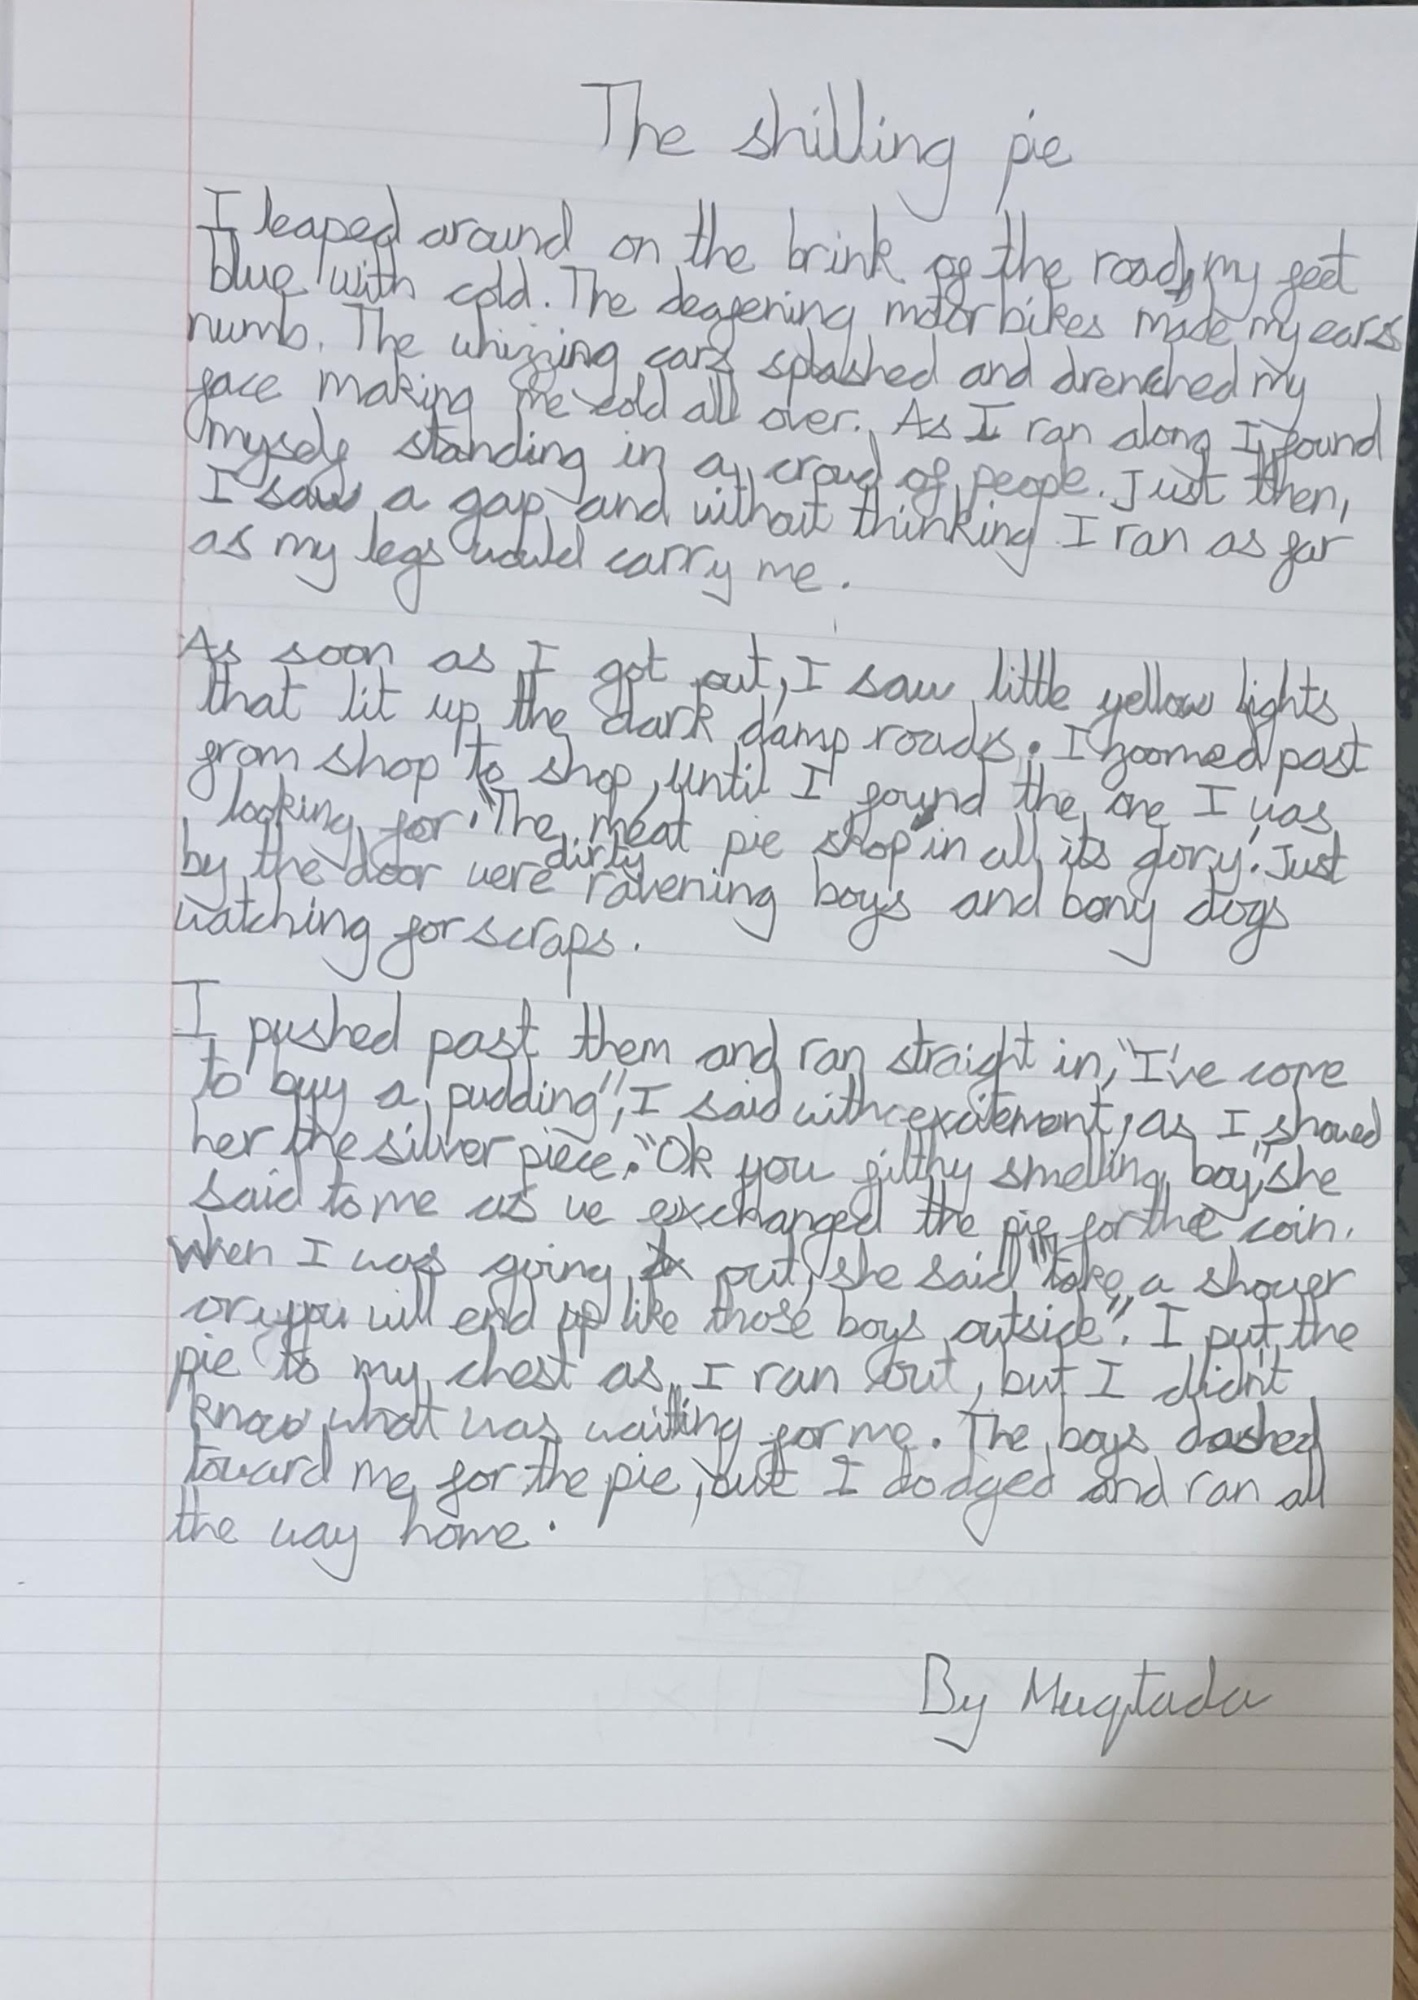 The shilling pie
I leaped around on the brink of the road, my feet
blue with cold. The deafening motorbikes made my ears
numb. The whizzing cars splashed and drenched my
face making me cold all over. As I ran along I found
myself standing in a crowd of people. Just then,
I saw a gap and without thinking I ran as far
as my legs would carry me.
As soon as I got out, I saw little yellow lights
that lit up the dark damp roads. I zoomed past
from shop to shop, until I found the one I was
looking for. "The meat pie shop in all its glory". Just
by the door were dirty ravening boys and bony dogs
watching for scraps.
I pushed past them and ran straight in, "I've come
to buy a pudding", I said with excitement, as I showed
her the silver piece. "Ok you filthy smelling boy", she
said to me as we exchanged the pie for the coin.
When I was going out, she said "take a shower
or you will end up like those boys outside". I put the
pie to my chest as I ran out, but I didn't
know what was waiting for me. The boys dashed
toward me for the pie, but I dodged and ran all
the way home.
By Muqtada